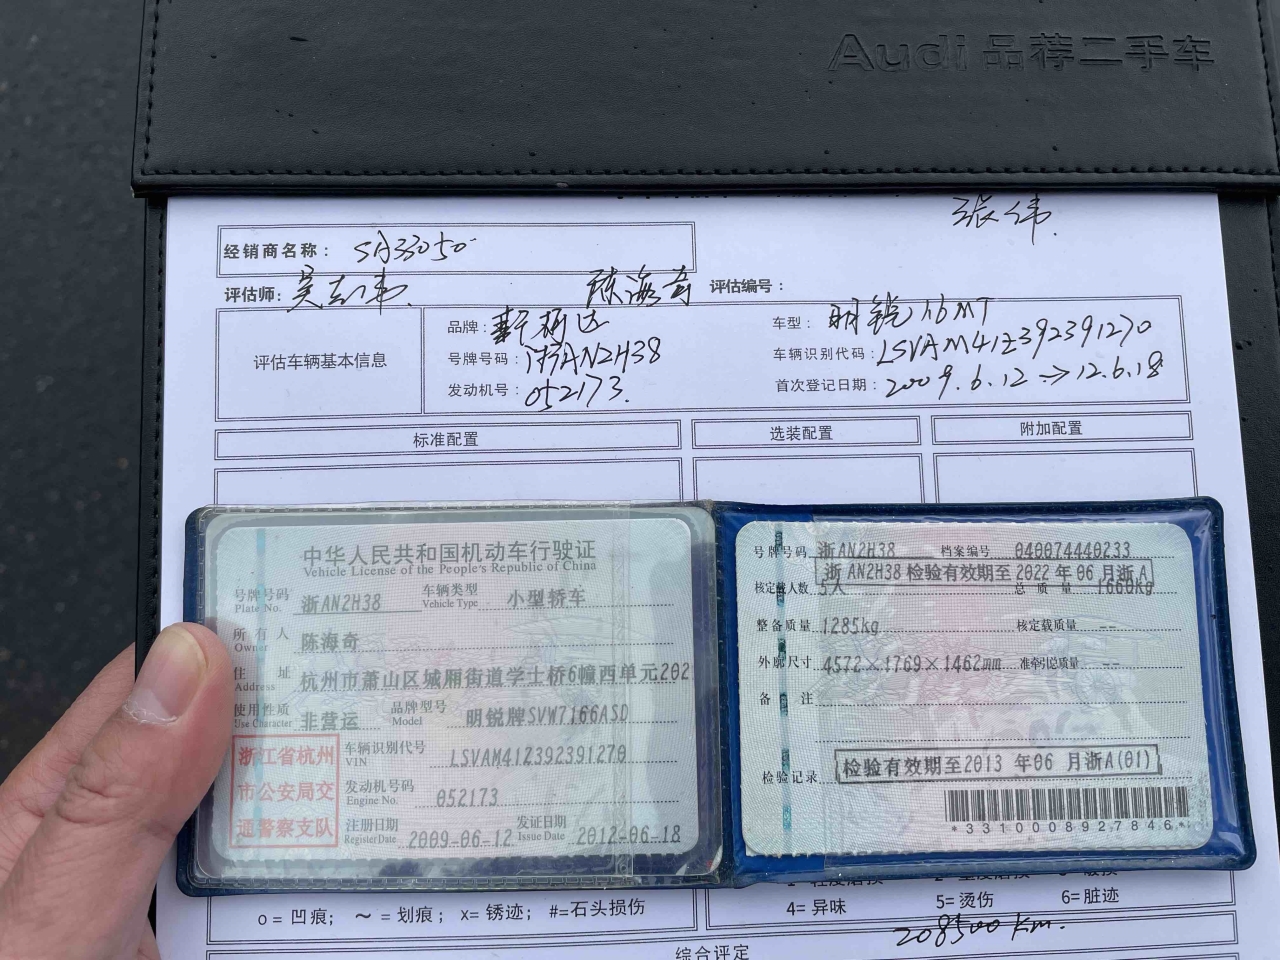 Audi 品荐二手车
张伟
经销商名称： SA33050
评估师： 吴志伟 陈海奇 评估编号：
评估车辆基本信息
品牌： 斯柯达 车型： 明锐1.6MT
号牌号码： 浙AN2H38 车辆识别代码： LSVAM41Z392391270
发动机号： 052173. 首次登记日期： 2009.6.12 → 12.6.18
标准配置 选装配置 附加配置
中华人民共和国机动车行驶证
Vehicle License of the People's Republic of China
号牌号码 浙AN2H38 车辆类型 小型轿车
Plate No. Vehicle Type
所有人 陈海奇
Owner
住址 杭州市萧山区城厢街道学士桥6幢西单元202
Address
使用性质 非营运 品牌型号 明锐牌SVW7166ASD
Use Character Model
浙江省杭州
市公安局交
通警察支队
车辆识别代号 LSVAM41Z392391270
VIN
发动机号码 052173
Engine No.
注册日期 2009-06-12 发证日期 2012-06-18
Register Date Issue Date
号牌号码 浙AN2H38 档案编号 040074440233
浙AN2H38 检验有效期至2022年06月浙A
核定载人数 5人 总质量 1660kg
整备质量 1285kg 核定载质量 --
外廓尺寸 4572×1769×1462mm 准牵引总质量 --
备注
检验记录 检验有效期至2013年06月浙A(01)
*3310008927846*
o=凹痕； ～=划痕； x=锈迹； #=石头损伤
4=异味 5=烫伤 6=脏迹
208500 km.
综合评定